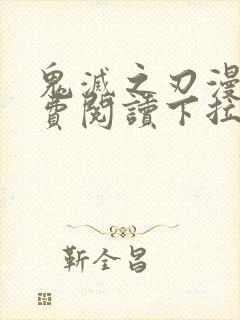 鬼滅之刃漫
費閱讀下拉
靳全昌